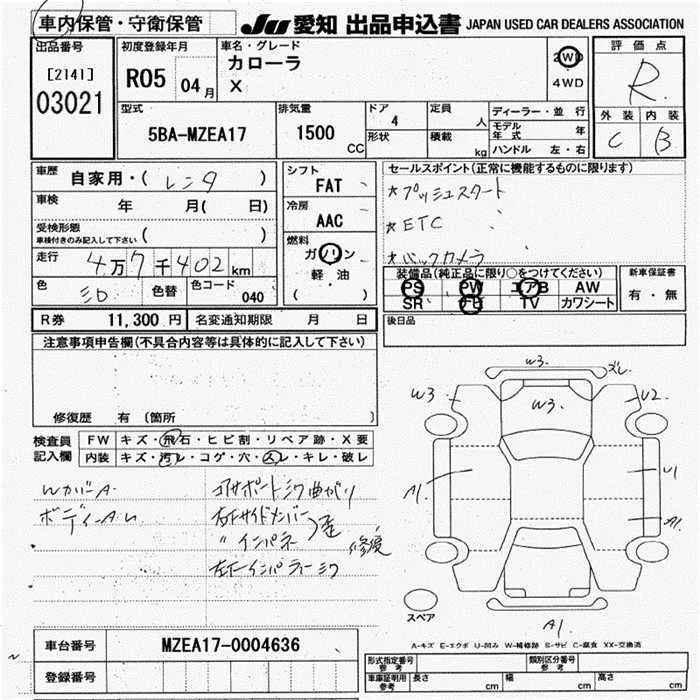 車内保管・守衛保管 JU 愛知 出品申込書 JAPAN USED CAR DEALERS ASSOCIATION
出品番号 初度登録年月 車名・グレード 評価点
[2141] R05 04月 カローラ 2WD
03021 X 4WD R
型式 排気量 ドア 定員 ディーラー・並行 外装 内装
5BA-MZEA17 1500 CC 4 人 モデル年式 年 C B
形状 積載 kg ハンドル 左・右
車歴 自家用・(レンタ) シフト FAT セールスポイント(正常に機能するものに限ります)
車検 年 月( 日) 冷房 AAC *プッシュスタート
受検形態 車検付きのみ記入して下さい ( ) 燃料 ガソリン *ETC
走行 4万7千402km 軽・油 *バックカメラ
色 色替 色コード 040 ( ) 装備品(純正品に限り○をつけてください) 新車保証書
PS PW エアB AW 有・無
SR ナビ TV カワシート
R券 11,300円 名変通知期限 月 日 後日品
注意事項申告欄(不具合内容等は具体的に記入して下さい)
修復歴 有 (箇所 )
検査員記入欄 FW キズ・飛石・ヒビ割・リペア跡・X要
内装 キズ・汚レ・コゲ・穴・スレ・キレ・破レ
W3. ズレ
W3 W3. U2
A1. U1
A1.
WカバーA コアサポートミワ曲がり
ボディーA.U 右Fサイドメンバー
〃 インパネ 修復
スペア
A1.
A-キズ E-エクボ U-凹み W-補修跡 S-サビ C-腐食 XX-交換済
車台番号 MZEA17-0004636
登録番号
形式指定番号参考 類別区分番号参考
車庫証明用参考 長さ cm 幅 cm 高さ cm